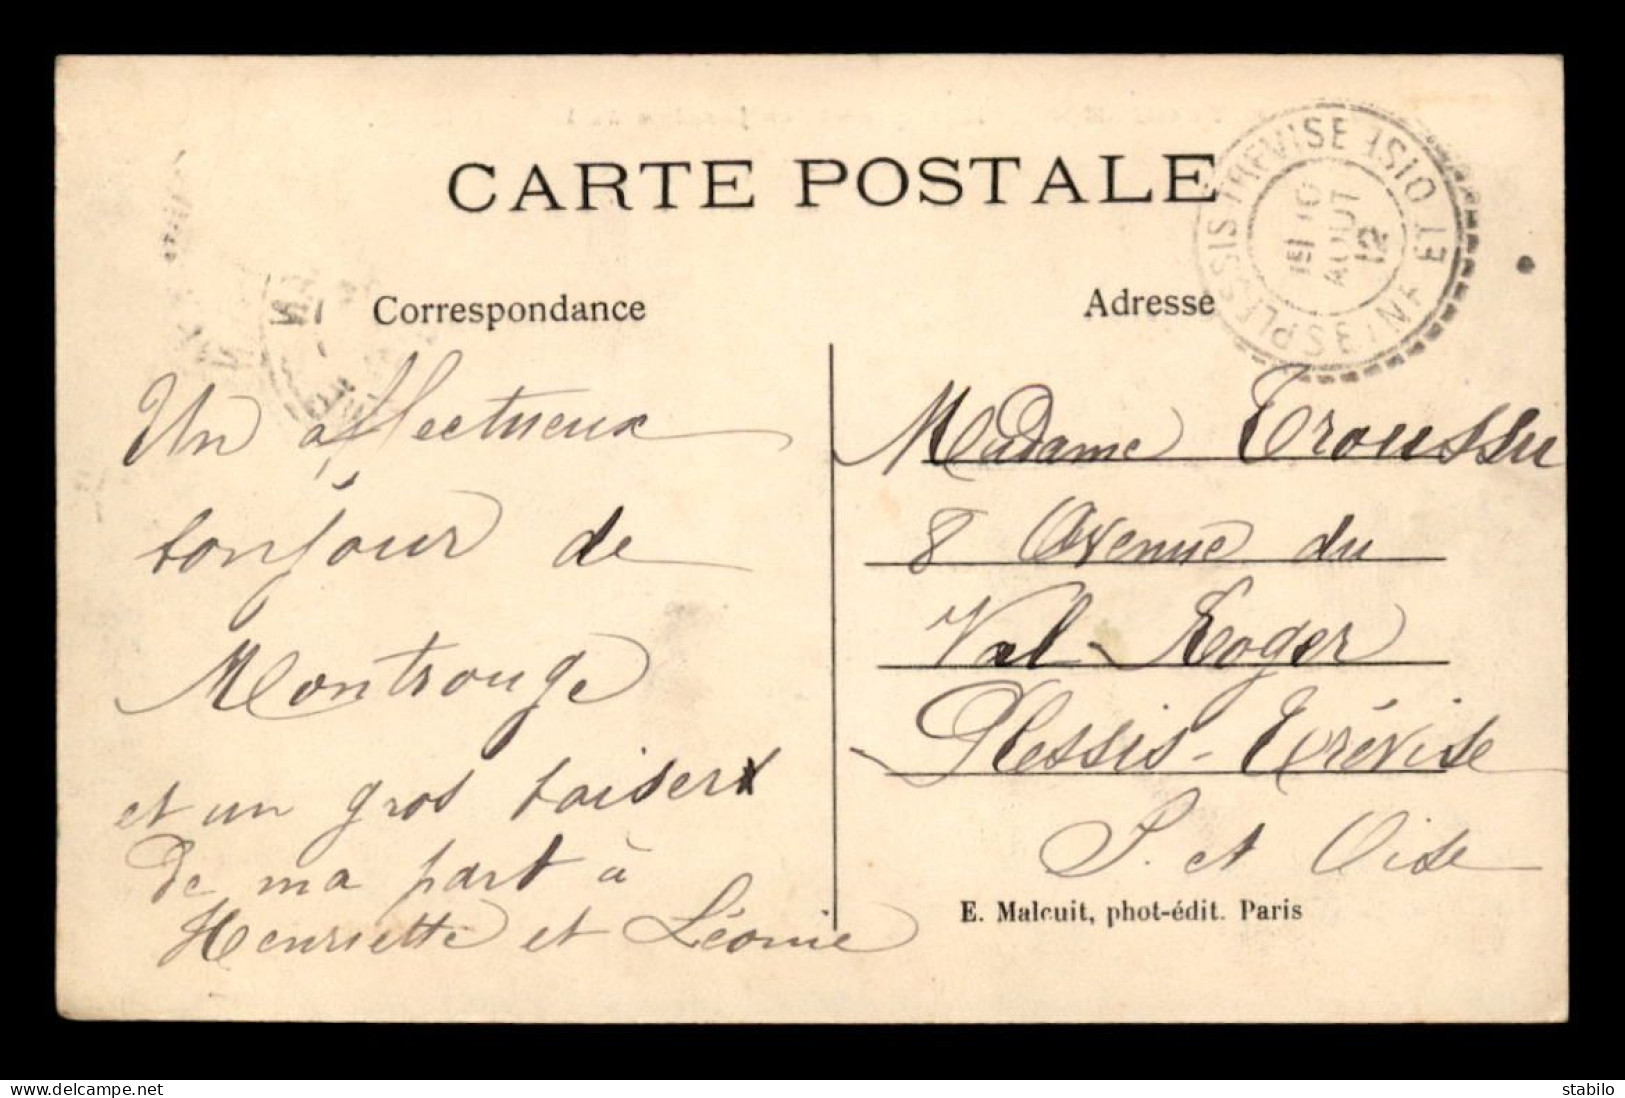 CARTE POSTALE
PLESSIS TREVISE
SEINE ET OISE
AOUT
12
Correspondance
Adresse
Un affectueux
bonjour de
Montrouge
et un gros baiser
de ma part à
Henriette et Léonie
Madame Troussu
8 Avenue du
Val Roger
Plessis-Trévise
S. et Oise
E. Malcuit, phot-édit. Paris
www.delcampe.net
stabilo